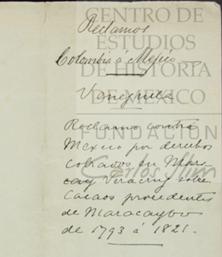 CENTRO DE
ESTUDIOS
DE HISTORIA
DE MÉXICO
FUNDACIÓN
Carlos Slim
Reclamos
Colombia á Méjico
Venezuela
Reclamo contra
Mexico por derechos
cobrados en
y Veracruz sobre
Cacaos procedentes
de Maracaybo
de 1793 á 1821.